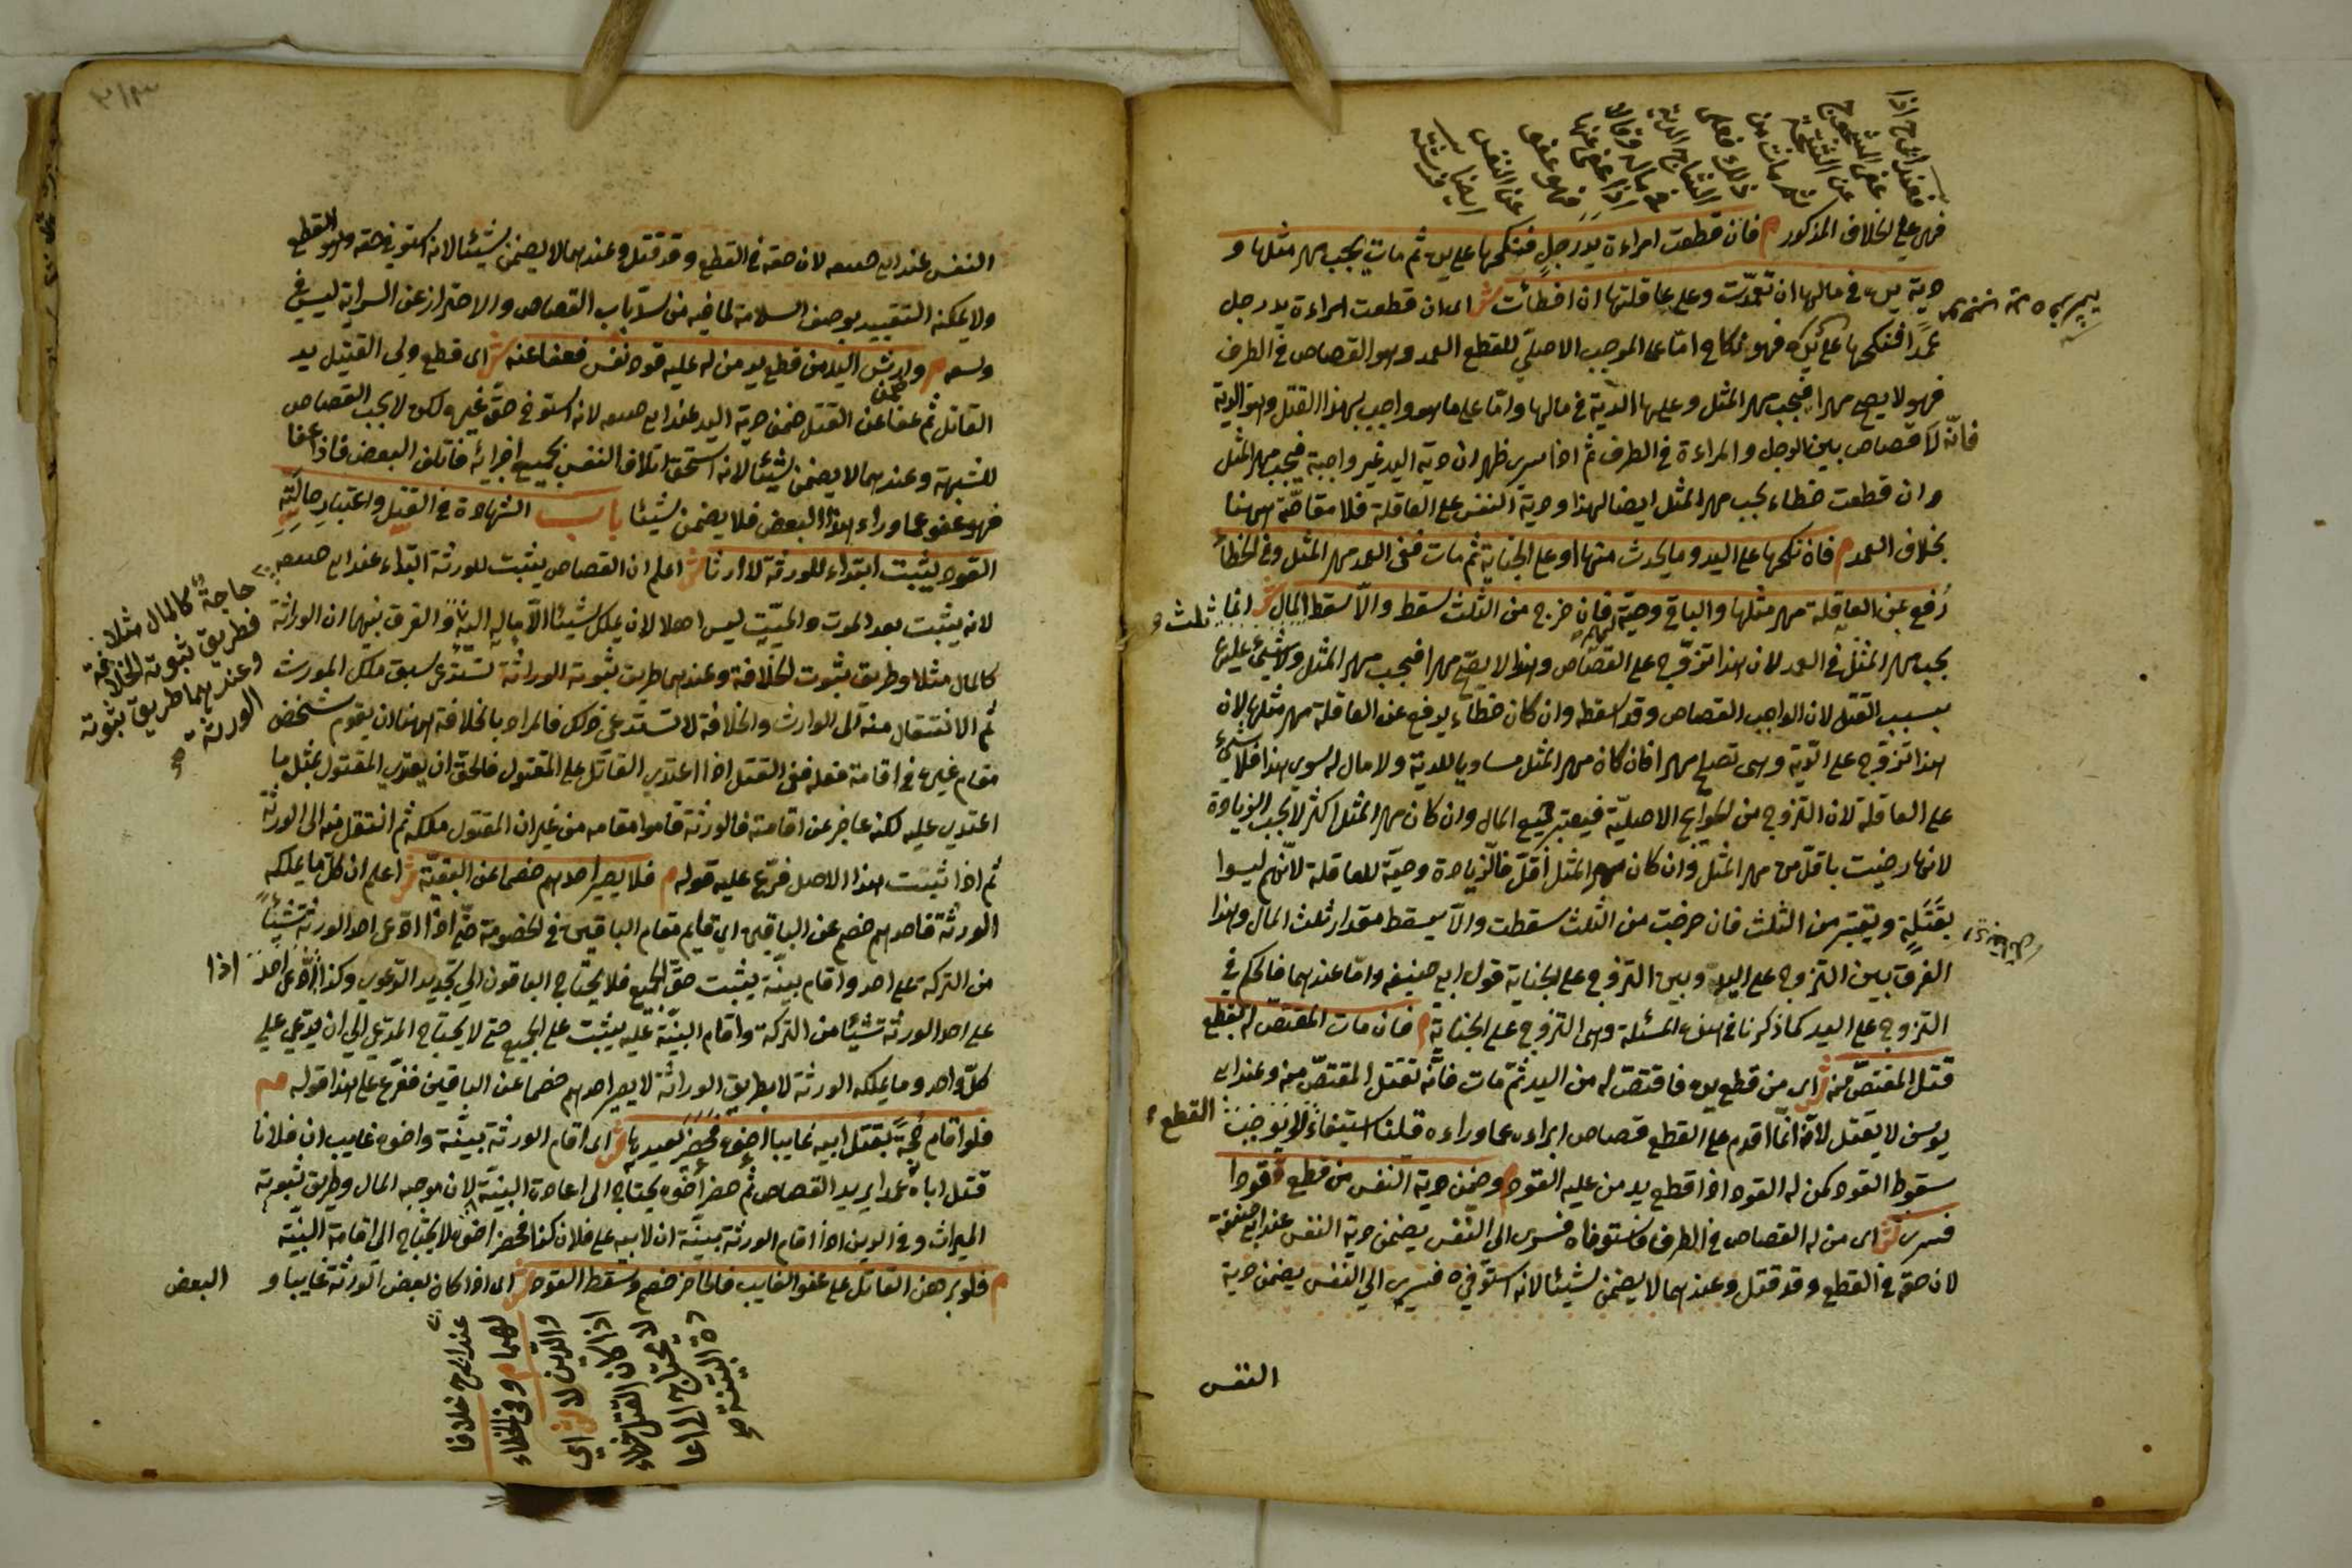 فعند ابى ح اذا
عفى الشجوج
عن الشجة
ثم مات من
ذلك فعلى
الشاج الدية
فى ماله وقالا
اذا عفى عنها
فهو عفو
عن النفس
ايضا
فهى على الخلاف المذكور م فان قطعت امراءة يد رجل فنكحها على يده ثم مات يجب مهر مثلها و
دية يده فى مالها ان تعمدت وعلى عاقلتها ان اخطأت ش اى ان قطعت امراءة يد رجل
عمدا فنكحها على يده فهو نكاح اما على الموجب الاصلى للقطع العمد وهو القصاص فى الطرف
فهو لا يصح مهرا فيجب مهر المثل وعليها الدية فى مالها واما على ما هو واجب بهذا القتل وهو الدية
فانه لا قصاص بين الرجل والمراءة فى الطرف ثم اذا سرى ظهر ان دية اليد غير واجبة فيجب مهر المثل
وان قطعت خطاء يجب مهر المثل ايضا لهذا ودية النفس على العاقلة فلا مقاصة ههنا
بخلاف العمد م فان نكحها على اليد وما يحدث منها او على الجناية ثم مات ففى العمد مهر المثل وفى الخطأ
رفع عن العاقلة مهر مثلها والباقى وصية لهم فان خرج من الثلث سقط والا سقط ثلث المال ش انما
يجب مهر المثل فى العمد لان هذا تزوج على القصاص وهذا لا يصح مهرا فيجب مهر المثل ولا شيء عليها
بسبب القتل لان الواجب القصاص وقد اسقطه وان كان خطاء يرفع عن العاقلة مهر مثلها لان
هذا تزوج على الدية وهى تصلح مهرا فان كان مهر المثل مساويا للدية ولا مال له سوى هذا فلا شىء
على العاقلة لان التزوج من الحوايج الاصلية فيعتبر جميع المال وان كان مهر المثل اكثر لا يجب الزيادة
لانها رضيت باقل من مهر المثل وان كان مهر المثل اقل فالزيادة وصية للعاقلة لانهم ليسوا
بقتلة ويعتبر من الثلث فان خرجت من الثلث سقطت والا يسقط مقدار ثلث المال وهذا
الفرق بين التزوج على اليد وبين التزوج على الجناية قول ابى حنيفه واما عندهما فالحكم فى
التزوج على اليد كما ذكرنا فى هذه المسئلة وهى التزوج على الجناية م فان مات المقتص له بقطع
قتل المقتص منه ش اى من قطع يده فاقتص له من اليد ثم مات فانه يقتل المقتص منه وعند ابى
يوسف لا يقتل لانه لما اقدم على القطع قصاص ابراءه عما وراءه قلنا استيفاء القطع لا يوجب
سقوط القود كمن له القود اذا قطع يد من عليه القود م وضمن دية النفس من قطع قودا
فسرى ش اى من له القصاص فى الطرف فاستوفاه فسرى الى النفس يضمن دية النفس عند ابى حنيفة
لان حقه فى القطع وقد قتل وعندهما لا يضمن شيئا لانه استوفى فيسرى الى النفس يضمن دية
النفس
النفس عند ابى حنيفه لان حقه فى القطع وقد قتل وعندهما لا يضمن شيئا لانه استوفى حقه وهو القطع
ولا يمكنه التقييد بوصف السلامة لما فيه من سد باب القصاص والاحتراز عن السراية ليس فى
وسعه م وارش اليد من قطع يد من له عليه قود نفس فعفا عنه ش اى قطع ولى القتيل يد
القاتل ثم عفا عن القتل ضمن دية اليد عند ابى حنيفه لانه استوفى حق غيره لكن لا يجب القصاص
للشبهة وعندهما لا يضمن شيئا لانه استحق اتلاف النفس بجميع اجزائه فاتلف البعض فاذا عفا
فهو عفو عما وراء هذا البعض فلا يضمن شيئا باب الشهادة فى القتل واعتبار حالته
القود يثبت ابتداء للورثة لا ارثا ش اعلم ان القصاص يثبت للورثة ابتداء عند ابى حنيفه
لانه يثبت بعد الموت والميت ليس اهلا لان يملك شيئا الا ما له اليه حاجة كالمال مثلا فطريق ثبوته الخلافة وعندهما طريق ثبوته الوراثة والفرق بينهما ان الوراثة
كالمال مثلا وطريق ثبوت الخلافة وعندهما طريق ثبوته الوراثة تستدعى سبق ملك المورث
ثم الانتقال منه الى الوارث والخلافة لا تستدعى ذلك فالمراد بالخلافة ههنا ان يقوم شخص
مقام غيره فى اقامة فعله ففى القتل اذا اعتدى القاتل على المقتول فالحق ان يعتدى المقتول بمثل ما
اعتدى عليه لكنه عاجز عن اقامته فالورثة قاموا مقامه من غير ان المقتول ملكه ثم انتقل منه الى الورثة
ثم اذا ثبت هذا الاصل فرع عليه قوله م فلا يصير احدهم خصما عن البقية ش اعلم ان كل ما يملكه
الورثة فاحدهم خصم عن الباقين اى قايم مقام الباقين فى الخصومة حتى اذا ادعى احد الورثة شيئا
من التركة على احد واقام بينة يثبت حق الجميع فلا يحتاج الباقون الى تجديد الدعوى وكذا اذا ادعى احد
على احد الورثة شيئا من التركة واقام البينة عليه يثبت على الجميع حتى لا يحتاج المدعى الى ان يدعى على
كل واحد وما يملكه الورثة لا بطريق الوراثة لا يصير احدهم خصما عن الباقين ففرع على هذا قوله م
فلو اقام حجة بقتل ابيه غايبا اخوه فحضر يعيدها ش اى اقام الورثة بينة واخوه غايب ان فلانا
قتل اباه عمدا يريد القصاص ثم حضر اخوه يحتاج الى اعادة البينة لان موجبه المال وطريق ثبوته
الميراث وفى الدين اذا اقام الورثة بينة ان لابيه على فلان كذا فحضر اخوه لا يحتاج الى اقامة البينة
م فلو برهن القاتل على عفو الغايب فالحاضر خصم وسقط القود ش اى اذا كان بعض الورثة غايبا و
البعض
عند ابى ح خلافا
لهما م وفى الخطاء
والدين لا ش اى
اذا كان القتل خطاء
لا يحتاج الى اعا
دة البينة صح